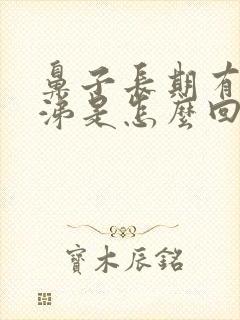 鼻子長期有
涕是怎麼回
寶木辰銘